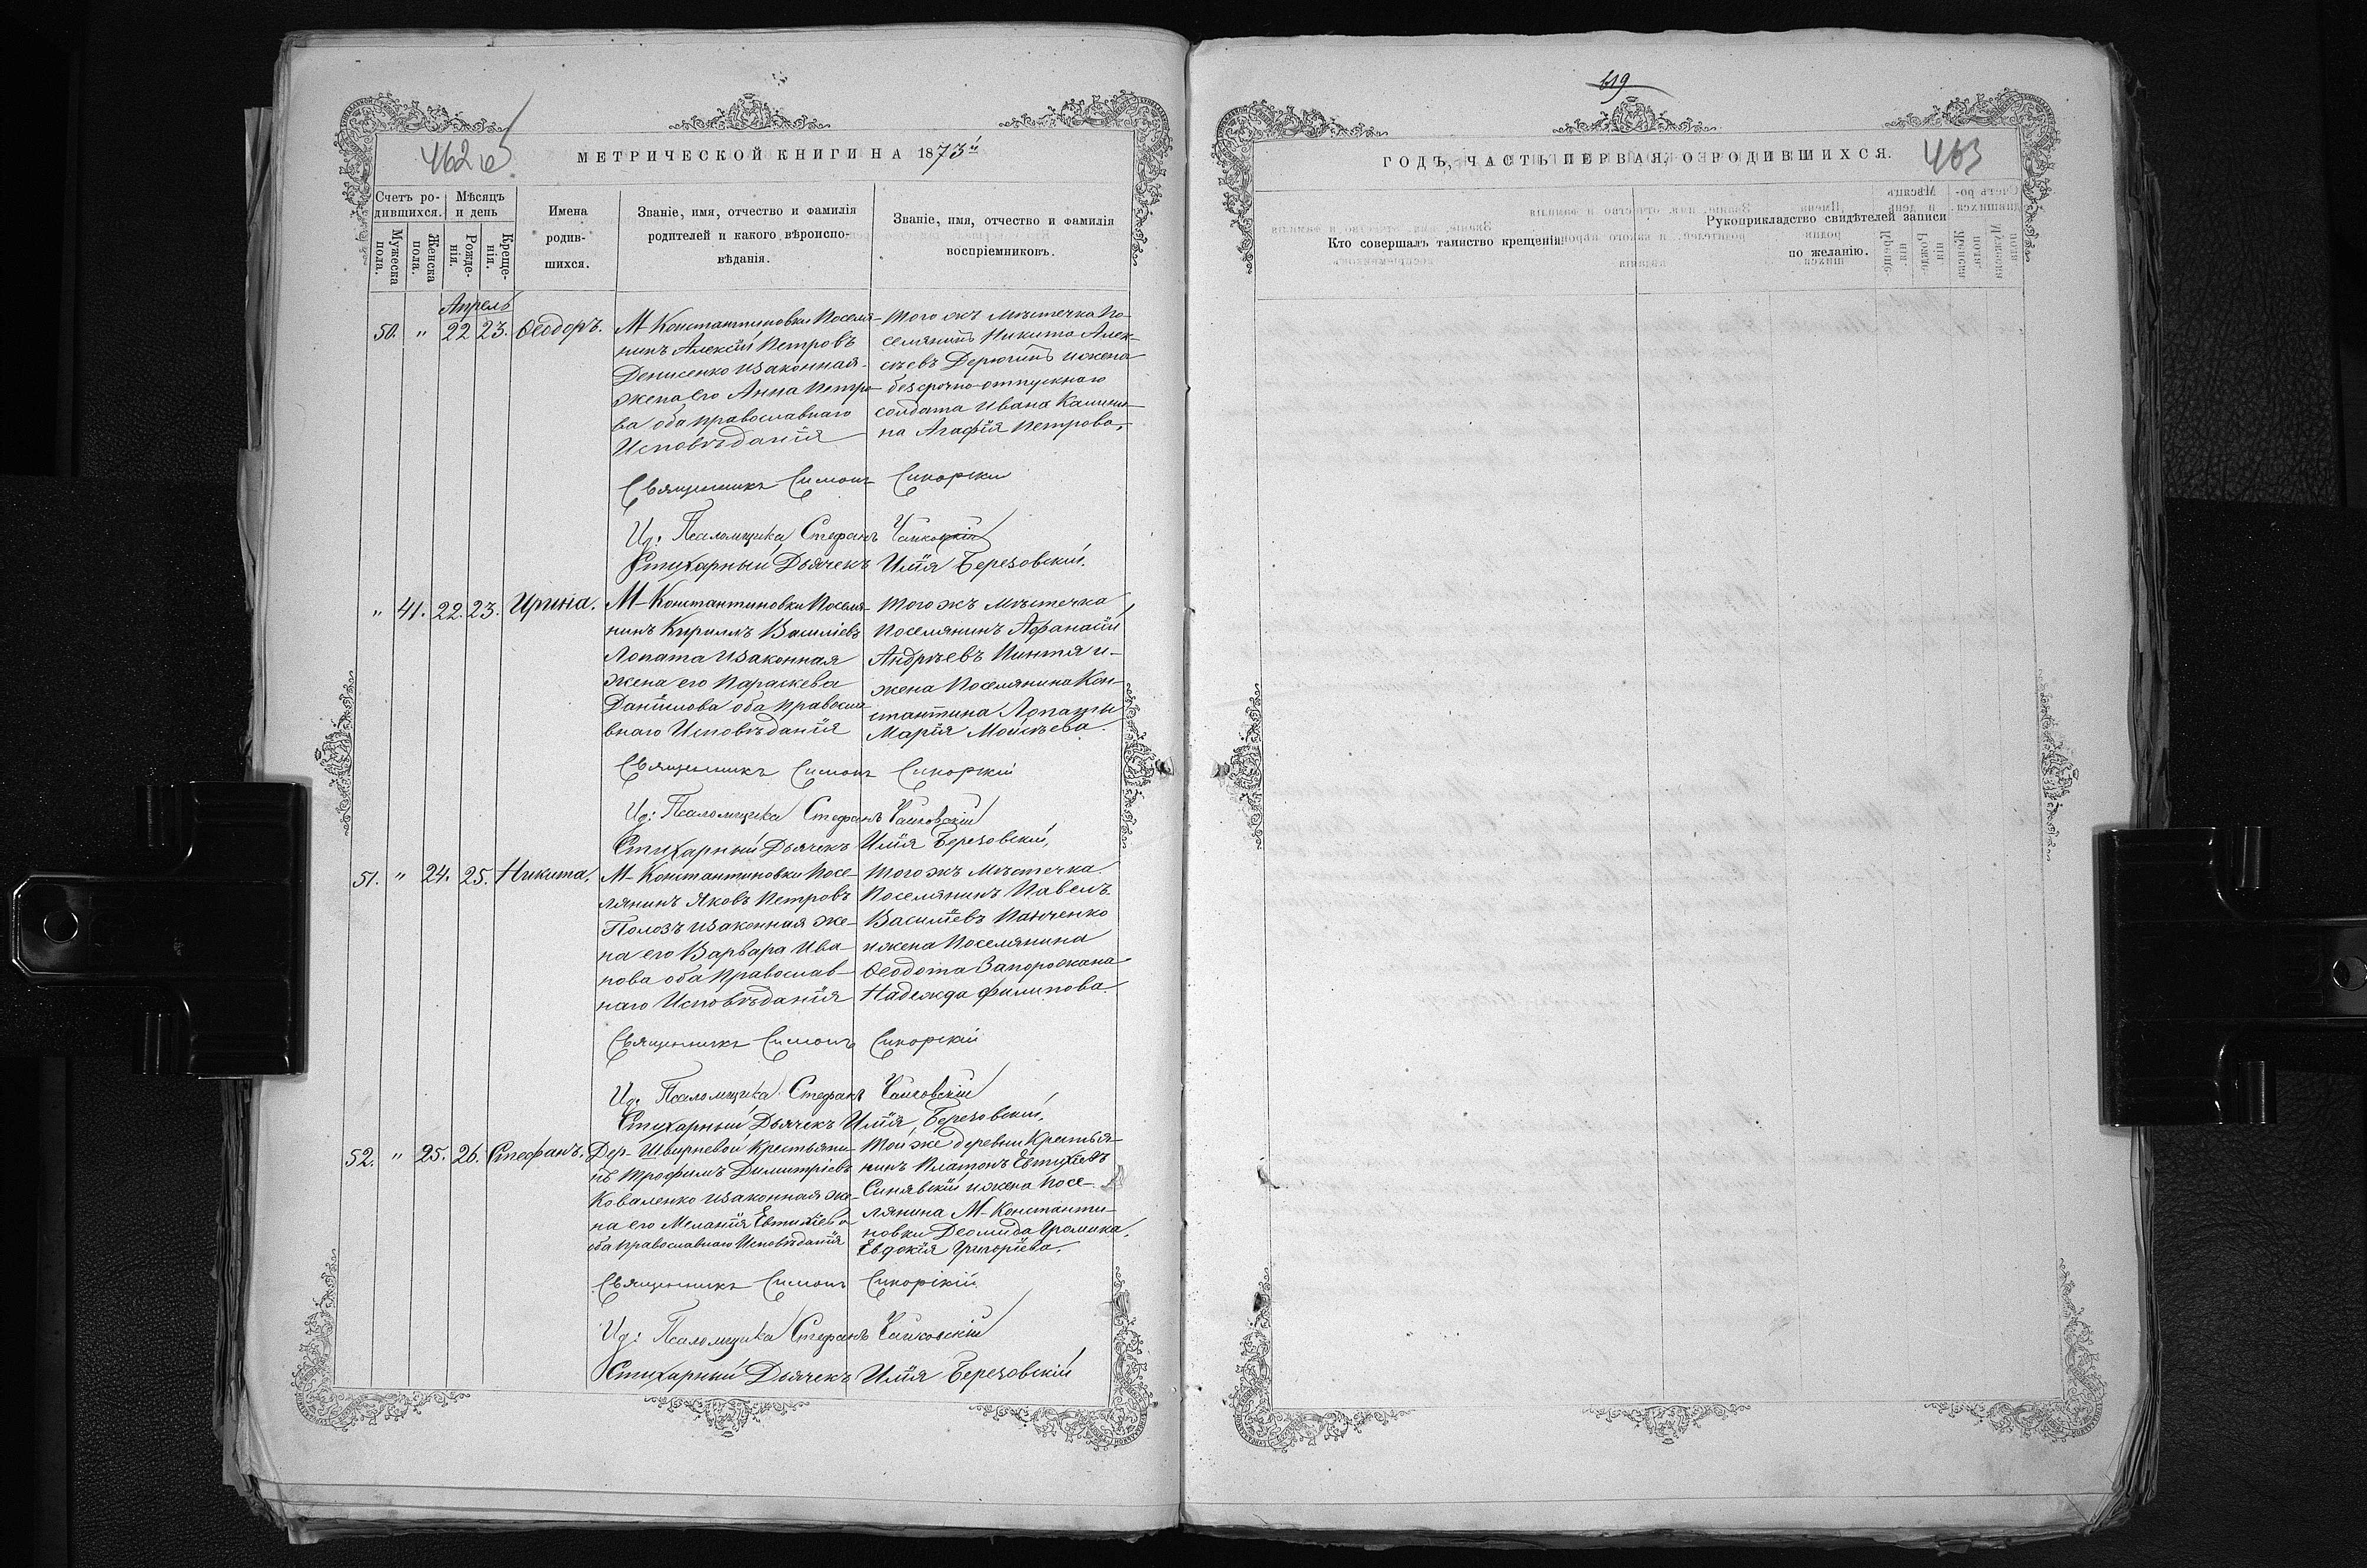 462 об
МЕТРИЧЕСКОЙ КНИГИ НА 1873й
Счетъ родившихся.
Мѣсяцъ и день
Имена родившихся.
Званіе, имя, отчество и фамилія родителей и какого вѣроисповѣданія.
Званіе, имя, отчество и фамилія воспріемниковъ.
Мужеска пола.
Женска пола.
Рожденія.
Крещенія.
Апрель
50. " 22 23. Ѳеодоръ.
М- Константиновки Поселя-
нинъ Алексій Петровъ
Денисенко изаконная
жена его Анна Петро-
ва оба православнаго
Исповѣданія
Того жъ Мѣстечка По-
селянинъ Никита Алек-
сѣевъ Дерюгинъ ижена
безсрочно-отпускнаго
солдата Ивана Калини-
на Агафія Петрова.
Священникъ Симонъ Сикорскій
Ид: Псаломщика Стефанъ Чайковскій
Стихарный Дьячекъ Илія Березовскій.
" 41. 22. 23. Ирина.
М- Константиновки Поселя-
нинъ Кириллъ Василіевъ
Лопата изаконная
жена его Параскева
Даніилова оба Правосла-
внаго Исповѣданія
Того жъ Мѣстечка
Поселянинъ Афанасій
Андрѣевъ и-
жена Поселянина Кон-
стантина Лопаты
Марія Моисѣева.
Священникъ Симонъ Сикорскій
Ид: Псаломщика Стефанъ Чайковскій
Стихарный Дьячекъ Илія Березовскій,
51. " 24. 25. Никита.
М- Константиновки Посе-
лянинъ Яковъ Петровъ
Полозъ изаконная же-
на его Варвара Ива-
нова оба Православ-
наго Исповѣданія
Того жъ Мѣстечка
Поселянинъ Павелъ
Василіевъ Панченко
ижена Поселянина
Ѳеодота Запорожана
Надежда Филипова.
Священникъ Симонъ Сикорскій
Ид: Псаломщика Стефанъ Чайковскій
Стихарный Дьячекъ Илія Березовскій.
52. " 25. 26. Стефанъ.
Дер- Швырневой Крестьяни-
нъ Трофимъ Димитріевъ
Коваленко изаконная же-
на его Меланія Евтихіева
оба православнаго Исповѣданія
Той же деревни Крестья-
нинъ Платонъ Евтихіевъ
Синявскій ижена Посе-
лянина М- Константи-
новки Деомида Громика.
Евдокія Григоріева.
Священникъ Симонъ Сикорскій
Ид: Псаломщика Стефанъ Чайковскій
Стихарный Дьячекъ Илія Березовскій
619
ГОДЪ, ЧАСТЬ ПЕРВАЯ, О РОДИВШИХСЯ.
463
Кто совершалъ таинство крещенія.
Рукоприкладство свидѣтелей записи
по желанію.